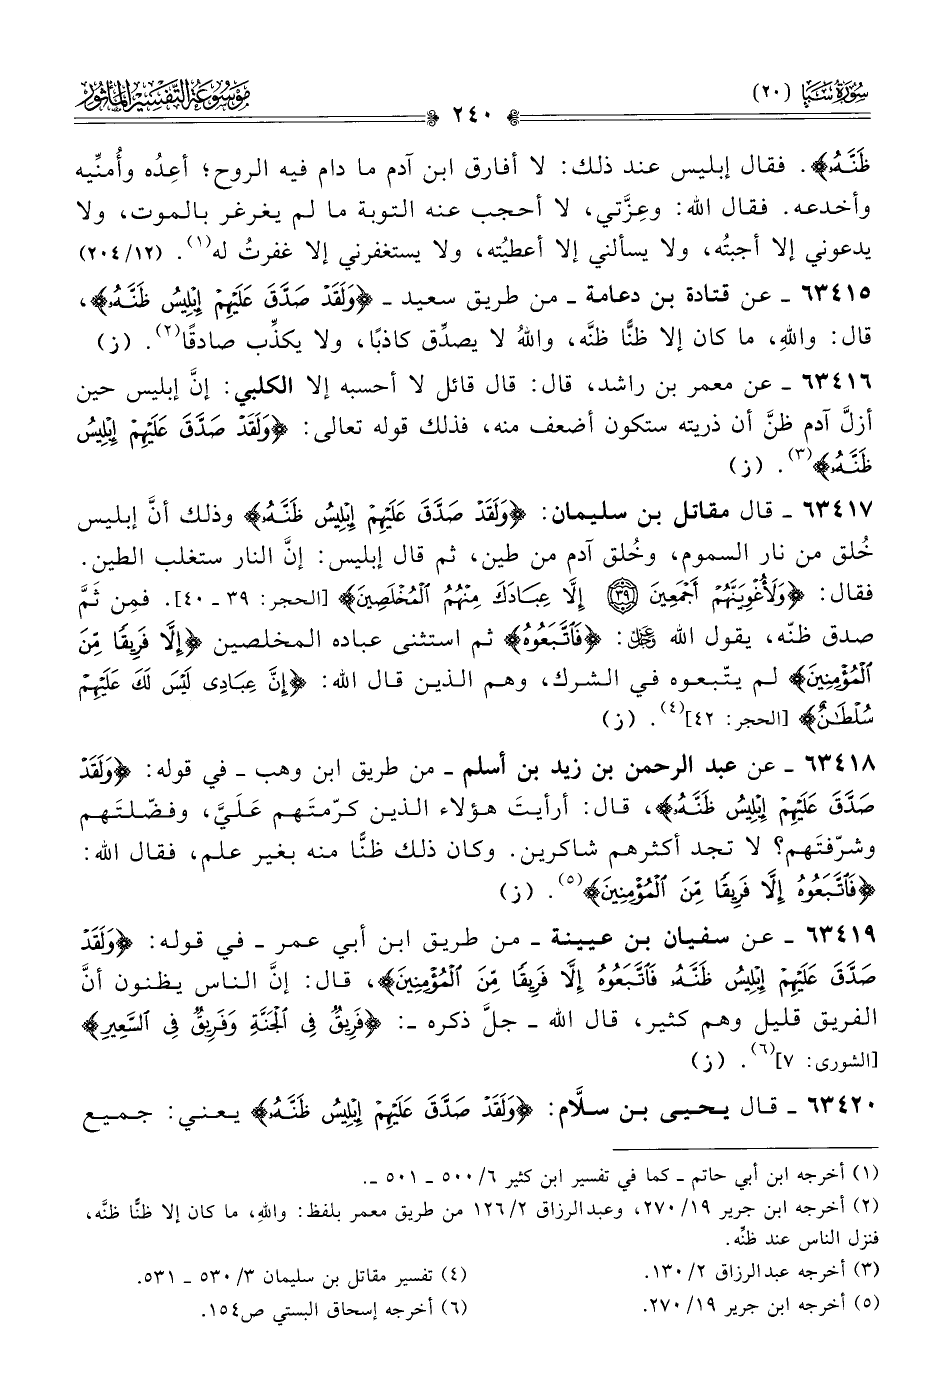 سُورَةُ سَبَإٍ (٢٠)
مَوْسُوعَةُ التَّفْسِيرِ المَأْثُورِ
٢٤٠
ظَنَّهُۥ﴾. فقال إبليس عند ذلك: لا أفارق ابن آدم ما دام فيه الروح؛ أعِدُه وأُمنِّيه
وأخدعه. فقال الله: وعِزَّتي، لا أحجب عنه التوبة ما لم يغرغر بالموت، ولا
يدعوني إلا أجبتُه، ولا يسألني إلا أعطيتُه، ولا يستغفرني إلا غفرتُ له(١). (٢٠٤/١٢)
٦٣٤١٥ ـ عن قتادة بن دعامة ـ من طريق سعيد ـ ﴿وَلَقَدۡ صَدَّقَ عَلَيۡهِمۡ إِبۡلِيسُ ظَنَّهُۥ﴾،
قال: واللهِ، ما كان إلا ظنًّا ظنَّه، واللهُ لا يصدِّق كاذبًا، ولا يكذِّب صادقًا(٢). (ز)
٦٣٤١٦ ـ عن معمر بن راشد، قال: قال قائل لا أحسبه إلا الكلبي: إنَّ إبليس حين
أزلَّ آدم ظنَّ أن ذريته ستكون أضعف منه، فذلك قوله تعالى: ﴿وَلَقَدۡ صَدَّقَ عَلَيۡهِمۡ إِبۡلِيسُ
ظَنَّهُۥ﴾(٣). (ز)
٦٣٤١٧ ـ قال مقاتل بن سليمان: ﴿وَلَقَدۡ صَدَّقَ عَلَيۡهِمۡ إِبۡلِيسُ ظَنَّهُۥ﴾ وذلك أنَّ إبليس
خُلق من نار السموم، وخُلق آدم من طين، ثم قال إبليس: إنَّ النار ستغلب الطين.
فقال: ﴿وَلَأُغۡوِيَنَّهُمۡ أَجۡمَعِينَ ٣٩ إِلَّا عِبَادَكَ مِنۡهُمُ ٱلۡمُخۡلَصِينَ﴾ [الحجر: ٣٩ ـ ٤٠]. فمِن ثَمَّ
صدق ظنّه، يقول الله ﷿: ﴿فَٱتَّبَعُوهُ﴾ ثم استثنى عباده المخلصين ﴿إِلَّا فَرِيقٗا مِّنَ
ٱلۡمُؤۡمِنِينَ﴾ لم يتّبعوه في الشرك، وهم الذين قال الله: ﴿إِنَّ عِبَادِى لَيۡسَ لَكَ عَلَيۡهِمۡ
سُلۡطَٰنٌ﴾ [الحجر: ٤٢](٤). (ز)
٦٣٤١٨ ـ عن عبد الرحمن بن زيد بن أسلم ـ من طريق ابن وهب ـ في قوله: ﴿وَلَقَدۡ
صَدَّقَ عَلَيۡهِمۡ إِبۡلِيسُ ظَنَّهُۥ﴾، قال: أرأيتَ هؤلاء الذين كرّمتَهم عَلَيَّ، وفضّلتَهم
وشرّفتَهم؟ لا تجد أكثرهم شاكرين. وكان ذلك ظنًّا منه بغير علم، فقال الله:
﴿فَٱتَّبَعُوهُ إِلَّا فَرِيقٗا مِّنَ ٱلۡمُؤۡمِنِينَ﴾(٥). (ز)
٦٣٤١٩ ـ عن سفيان بن عيينة ـ من طريق ابن أبي عمر ـ في قوله: ﴿وَلَقَدۡ
صَدَّقَ عَلَيۡهِمۡ إِبۡلِيسُ ظَنَّهُۥ فَٱتَّبَعُوهُ إِلَّا فَرِيقٗا مِّنَ ٱلۡمُؤۡمِنِينَ﴾، قال: إنَّ الناس يظنون أنَّ
الفريق قليل وهم كثير، قال الله ـ جلَّ ذكره ـ: ﴿فَرِيقٞ فِى ٱلۡجَنَّةِ وَفَرِيقٞ فِى ٱلسَّعِيرِ﴾
[الشورى: ٧](٦). (ز)
٦٣٤٢٠ ـ قال يحيى بن سلَّام: ﴿وَلَقَدۡ صَدَّقَ عَلَيۡهِمۡ إِبۡلِيسُ ظَنَّهُۥ﴾ يعني: جميع
(١) أخرجه ابن أبي حاتم ـ كما في تفسير ابن كثير ٥٠٠/٦ ـ ٥٠١ ـ.
(٢) أخرجه ابن جرير ٢٧٠/١٩، وعبدالرزاق ١٢٦/٢ من طريق معمر بلفظ: واللهِ، ما كان إلا ظنًّا ظنَّه،
فنزل الناس عند ظنِّه.
(٣) أخرجه عبدالرزاق ١٣٠/٢.
(٤) تفسير مقاتل بن سليمان ٥٣٠/٣ ـ ٥٣١.
(٥) أخرجه ابن جرير ٢٧٠/١٩.
(٦) أخرجه إسحاق البستي ص١٥٤.